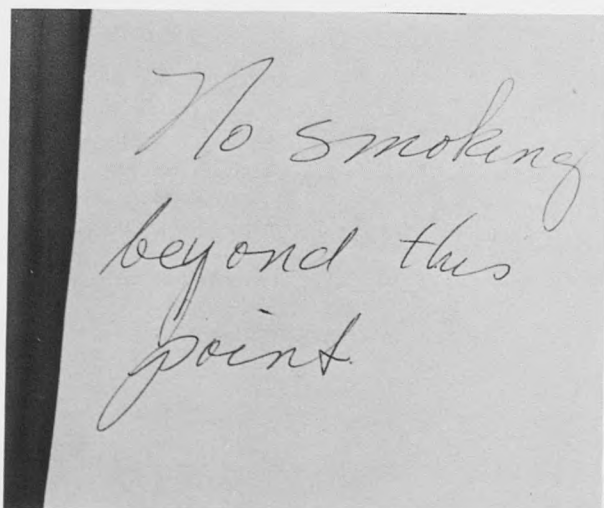 No smoking
beyond this
point.